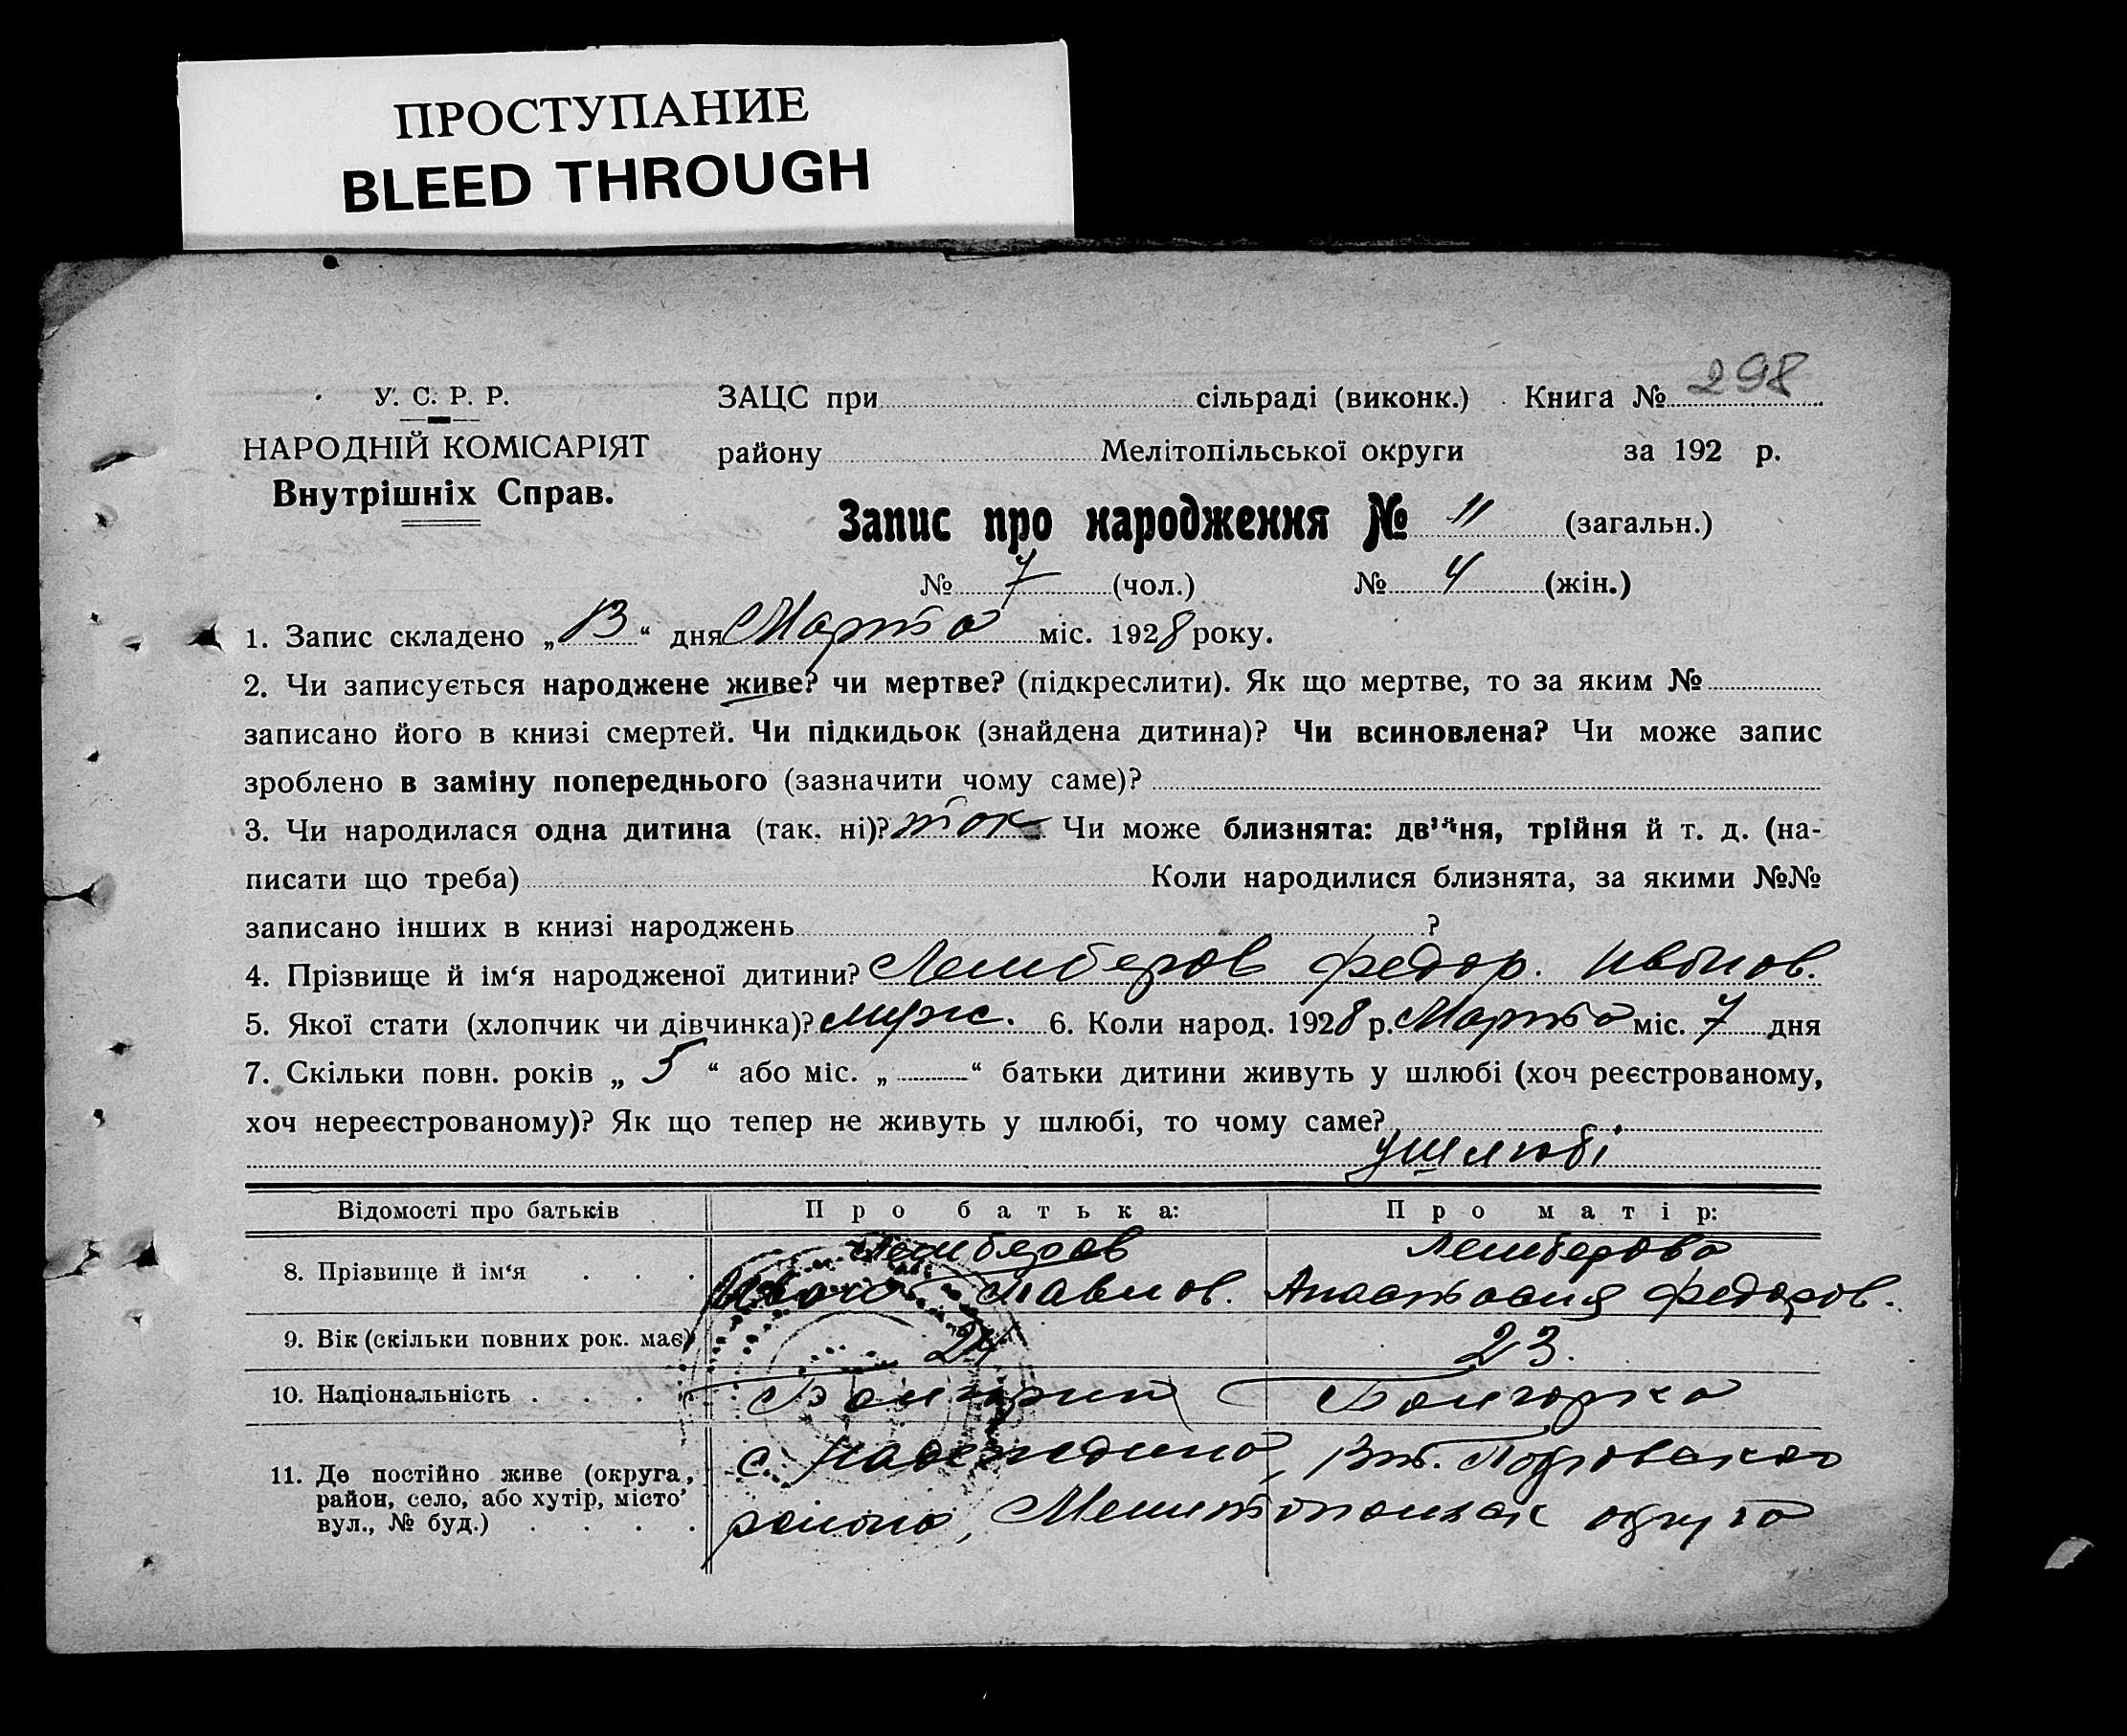 ПРОСТУПАНИЕ
BLEED THROUGH
У. С. Р. Р.
НАРОДНІЙ КОМІСАРІЯТ
Внутрішніх Справ.
ЗАЦС при сільраді (виконк.) Книга № 298
району Мелітопільської округи за 192 р.
Запис про народження № 11 (загальн.)
№ 7 (чол.) № 4 (жін.)
1. Запис складено „13“ дня Марта міс. 1928 року.
2. Чи записується народжене живе? чи мертве? (підкреслити). Як що мертве, то за яким №
записано його в книзі смертей. Чи підкидьок (знайдена дитина)? Чи всиновлена? Чи може запис
зроблено в заміну попереднього (зазначити чому саме)?
3. Чи народилася одна дитина (так, ні)? так Чи може близнята: двійня, трійня й т. д. (на-
писати що треба) Коли народилися близнята, за якими №№
записано інших в книзі народжень ?
4. Прізвище й ім‘я народженої дитини? Лемберов Федор. Иванов.
5. Якої стати (хлопчик чи дівчинка)? муж. 6. Коли народ. 1928 р. Марта міс. 7 дня
7. Скільки повн. років „ 5 “ або міс. „ “ батьки дитини живуть у шлюбі (хоч реєстрованому,
хоч нереєстрованому)? Як що тепер не живуть у шлюбі, то чому саме?
у шлюбі
Відомості про батьків Про батька: Про матір:
8. Прізвище й ім‘я . . . Лемберов Иван Павлов. Лемберова Анастасия Федоров.
9. Вік (скільки повних рок. має) 24 23.
10. Національність . . . . Болгарин Болгарка
11. Де постійно живе (округа, район, село, або хутір, місто вул., № буд.) . . . . с. Надеждино, Вт. Покровскаго
района, Мелитопольск округа